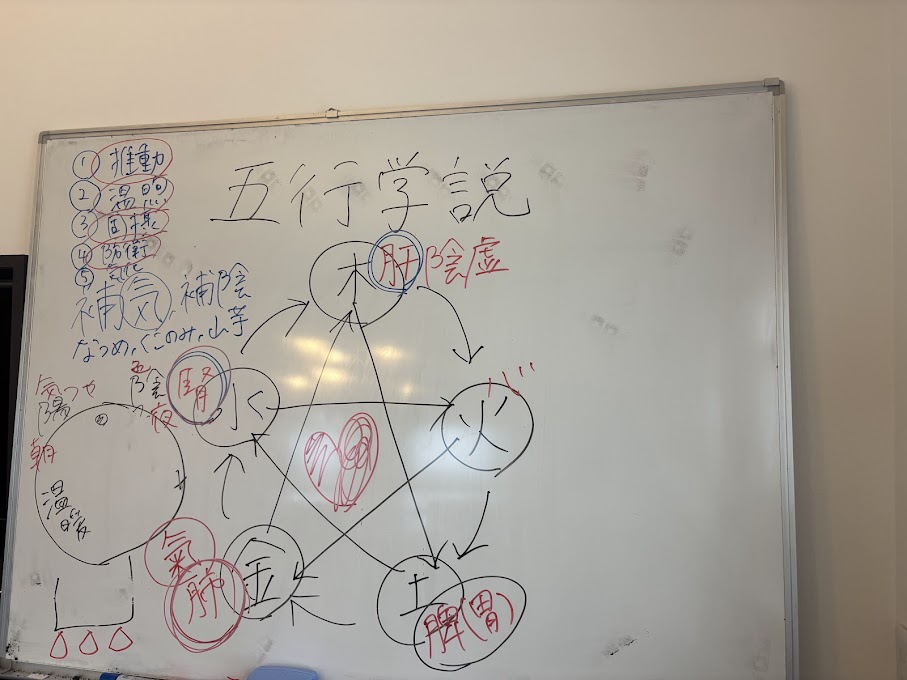 ① 推動
② 温煦
③ 固摂
④ 防衛
⑤ 気化
補気、補陰
なつめ、くこのみ、山芋
五行学説
木 肝 陰虚
腎 水
火
氣 肺 金
土 脾(胃)
陽
陰
朝
夜
温